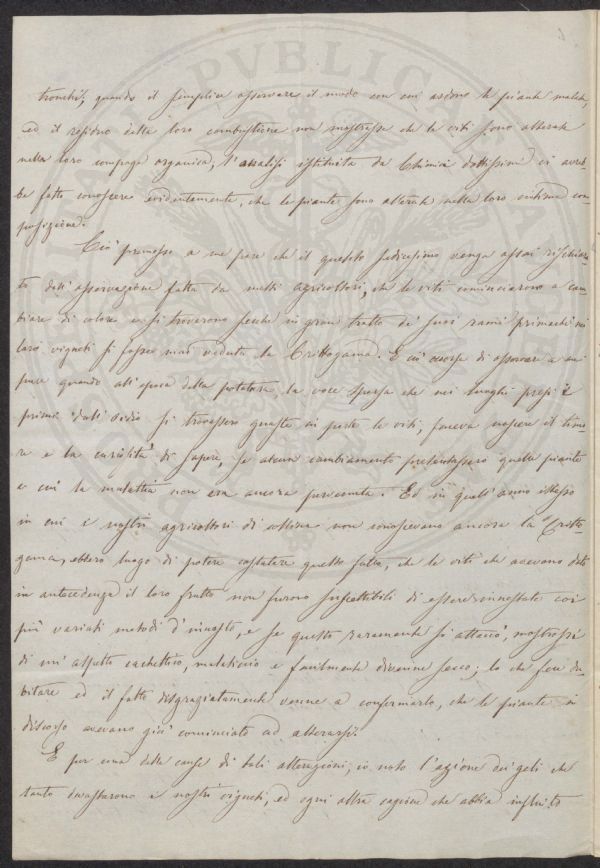 tronchi; quando il semplice osservare il modo con cui ardono le piante malate,
ed il residuo della loro combustione non mostrasse che le viti sono alterate
nella loro compage organica, l'analisi istituita da Chimici dottissimi ci avreb-
be fatto conoscere evidentemente, che le piante sono alterate nella loro intima com-
posizione.
Ciò premesso a me pare che il quesito sedicesimo venga assai rischiara-
to dall'osservazione fatta da molti agricoltori, che le viti cominciarono a cam-
biare di colore e si trovarono secche in gran tratto de' suoi rami primachè nei
loro vigneti si fosse mai veduta la Crittogama. E ciò occorse di osservare a me
pure quando all'epoca della potatura, la voce sparsa che nei luoghi presi i
primi dall'oidio si trovassero guaste in parte le viti, faceva nascere il timo-
re e la curiosità di sapere, se alcun cambiamento presentassero quelle piante
a cui la malattia non era ancora pervenuta. Ed in quell'anno istesso
in cui i nostri agricoltori di collina non conoscevano ancora la Critto-
gama, ebbero luogo di potere constatare questo fatto, che le viti che avevano dato
in antecedenza il loro frutto non furono suscettibili di essere innestate coi
più variati metodi d'innesto, e se questo raramente si attaccò, mostrossi
di un' aspetto cachettico, malaticcio e facilmente divenne secco; lo che fece du-
bitare ed il fatto disgraziatamente venne a confermarlo, che le piante in
discorso avevano già cominciato ad alterarsi.
E per una delle cause di tali alterazioni, io noto l'azione dei geli che
tanto devastarono i nostri vigneti, ed ogni altra cagione che abbia influito
PVBLICAE